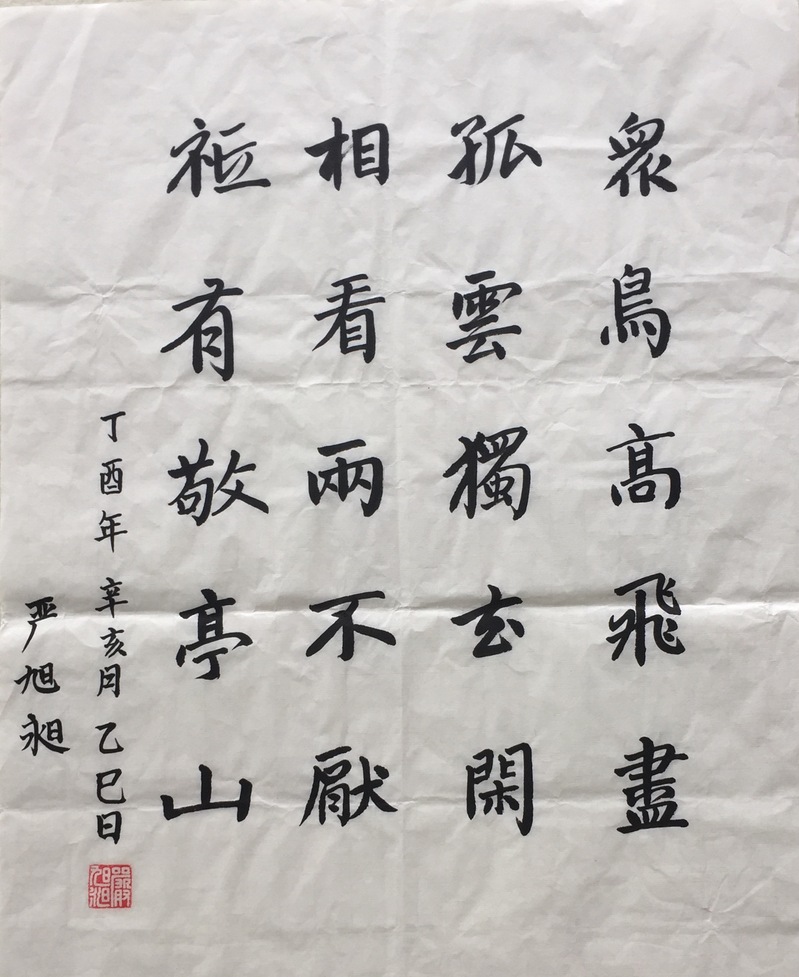 眾鳥高飛盡
孤雲獨去閑
相看兩不厭
祗有敬亭山
丁酉年 辛亥月 乙巳日
严旭昶
嚴旭昶